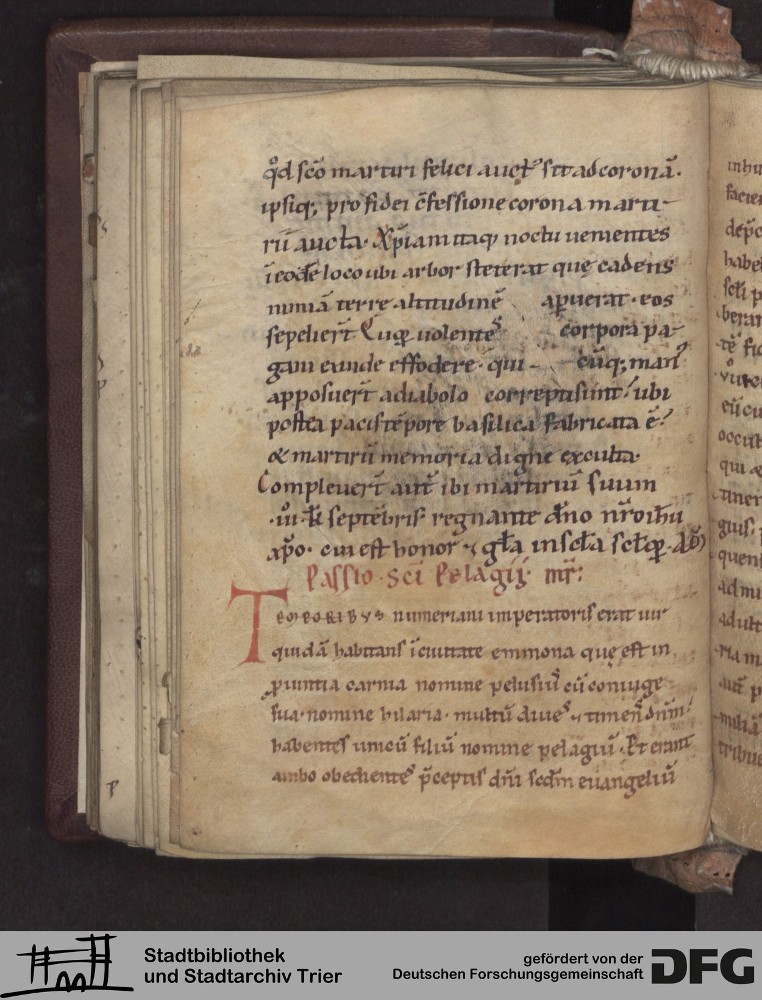 qͦd scō martiri felici auct᷒ sit ad coronā.
ipsiq; pro fidei c̄fessione corona marti-
rii aucta. Xp̄iani itaq; noctu uenientes
ī eodē loco ubi arbor steterat que cadens
nimiā terre altitudinē apuerat. eos
sepelier̄t Cuq; uolentes corpora pa-
gani exinde effodere. qui - cūq; man᷒
apposuer̄t a diabolo correpti sunt. ubi
postea pacis tēpore basilica fabricata ē.
& martirū memoria digne exculta.
Compleuer̄t aut̄ ibi martiriū suum
.iii. kł septēbris regnante dn̄o nr̄o ih̄u
xp̄o. cui est honor ⁊ gła in scła scłoꝝ. AM̄
Passio. Sc̄i Pelagii. mr̄.
TEMPORIBUS numeriani imperatoris erat uir
quidā habitans ī ciuitate emmona que est in
ꝓuintia carnia nomine pelusiu᷒ cū coniuge
sua. nomine hilaria. multū diues ⁊ timen᷒ dn̄m.
habentes unicū filiū nomine pelagiū. Et erant
ambo obedientes p̄ceptis dn̄i scdm̄ euangeliū
Stadtbibliothek
und Stadtarchiv Trier
gefördert von der
Deutschen Forschungsgemeinschaft
DFG